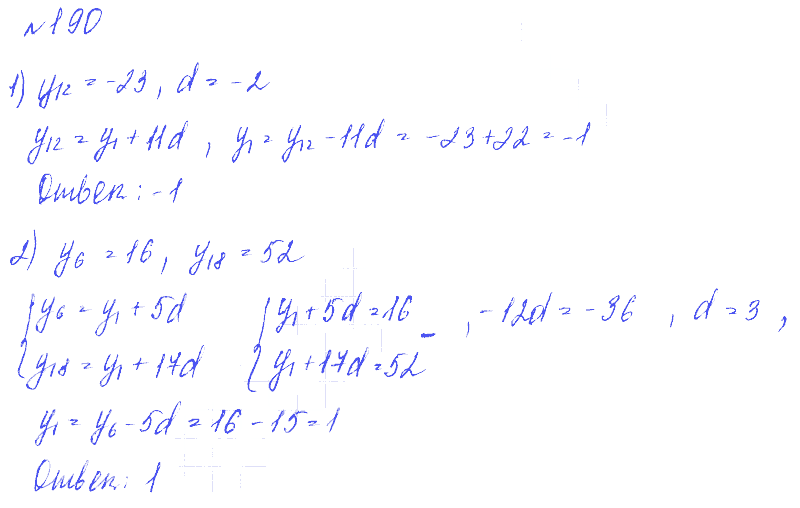 №190
1) y₁₂ = -23, d = -2
y₁₂ = y₁ + 11d, y₁ = y₁₂ - 11d = -23 + 22 = -1
Ответ: -1
2) y₆ = 16, y₁₈ = 52
{ y₆ = y₁ + 5d { y₁ + 5d = 16 -, -12d = -36, d = 3,
y₁₈ = y₁ + 17d y₁ + 17d = 52
y₁ = y₆ - 5d = 16 - 15 = 1
Ответ: 1